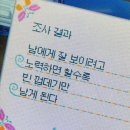 조사 결과
남에게 잘 보이려고
노력하면 할수록
빈 껍데기만
남게 된다